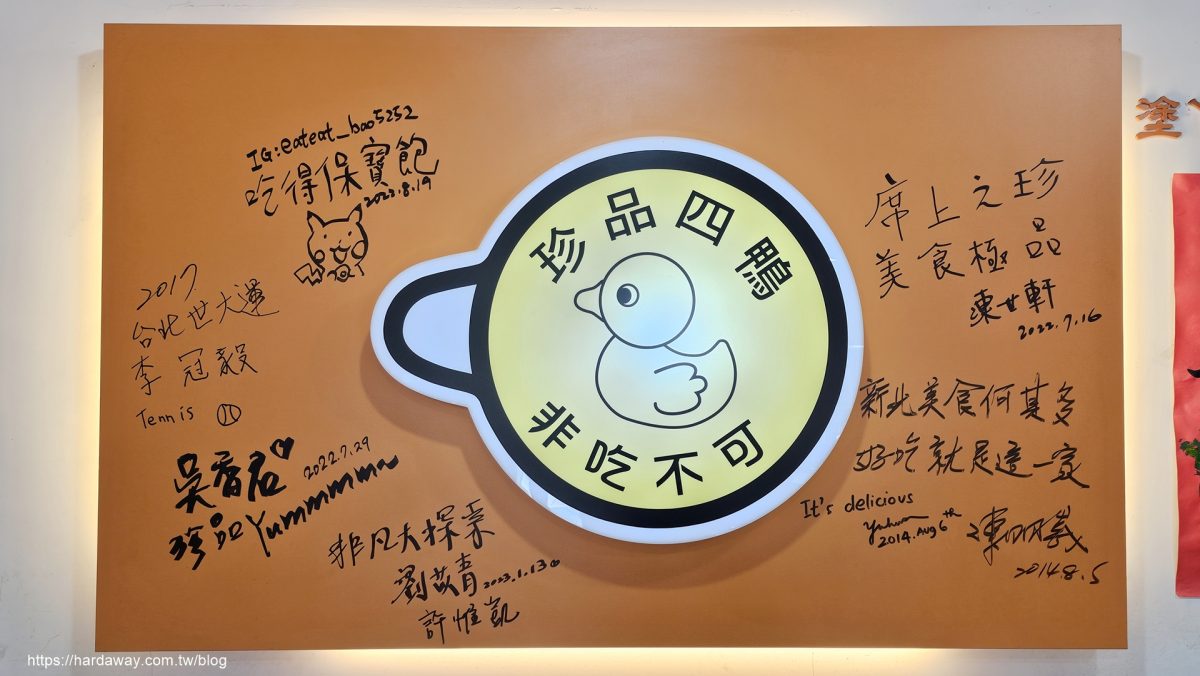 IG:eateat_bao5252
吃得保寶飽
2022.8.19
2017
台北世大運
李冠毅
Tennis
吳香君
2022.7.29
珍品Yummmmm~
非凡大探索
劉苡青 2023.1.13
許惟凱
珍品四鴨
非吃不可
席上之珍
美食極品
陳世軒
2022.7.16
新北美食何其多
好吃就是這一家
It's delicious
2014.Aug 6th
2014.8.5
塗
https://hardaway.com.tw/blog